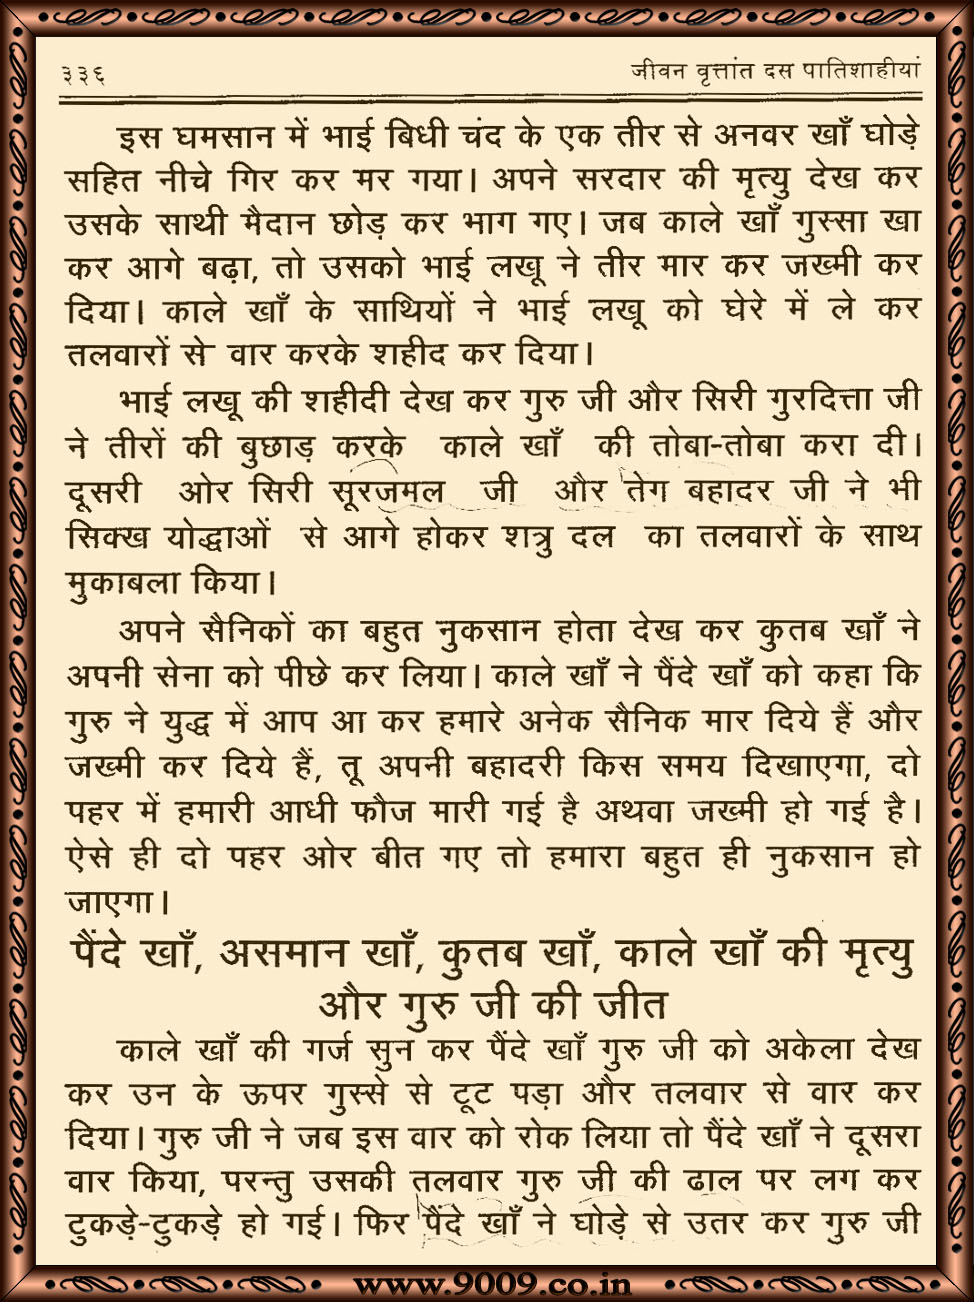 ३३६ जीवन वृत्तांत दस पातिशाहीयां
इस घमसान में भाई बिधी चंद के एक तीर से अनवर खाँ घोड़े
सहित नीचे गिर कर मर गया। अपने सरदार की मृत्यु देख कर
उसके साथी मैदान छोड़ कर भाग गए। जब काले खाँ गुस्सा खा
कर आगे बढ़ा, तो उसको भाई लखू ने तीर मार कर जख्मी कर
दिया। काले खाँ के साथियों ने भाई लखू को घेरे में ले कर
तलवारों से वार करके शहीद कर दिया।
भाई लखू की शहीदी देख कर गुरु जी और सिरी गुरदित्ता जी
ने तीरों की बुछाड़ करके काले खाँ की तोबा-तोबा करा दी।
दूसरी ओर सिरी सूरजमल जी और तेग बहादर जी ने भी
सिक्ख योद्धाओं से आगे होकर शत्रु दल का तलवारों के साथ
मुकाबला किया।
अपने सैनिकों का बहुत नुकसान होता देख कर कुतब खाँ ने
अपनी सेना को पीछे कर लिया। काले खाँ ने पैंदे खाँ को कहा कि
गुरु ने युद्ध में आप आ कर हमारे अनेक सैनिक मार दिये हैं और
जख्मी कर दिये हैं, तू अपनी बहादरी किस समय दिखाएगा, दो
पहर में हमारी आधी फौज मारी गई है अथवा जख्मी हो गई है।
ऐसे ही दो पहर ओर बीत गए तो हमारा बहुत ही नुकसान हो
जाएगा।
पैंदे खाँ, असमान खाँ, कुतब खाँ, काले खाँ की मृत्यु
और गुरु जी की जीत
काले खाँ की गर्ज सुन कर पैंदे खाँ गुरु जी को अकेला देख
कर उन के ऊपर गुस्से से टूट पड़ा और तलवार से वार कर
दिया। गुरु जी ने जब इस वार को रोक लिया तो पैंदे खाँ ने दूसरा
वार किया, परन्तु उसकी तलवार गुरु जी की ढाल पर लग कर
टुकड़े-टुकड़े हो गई। फिर पैंदे खाँ ने घोड़े से उतर कर गुरु जी
www.9009.co.in